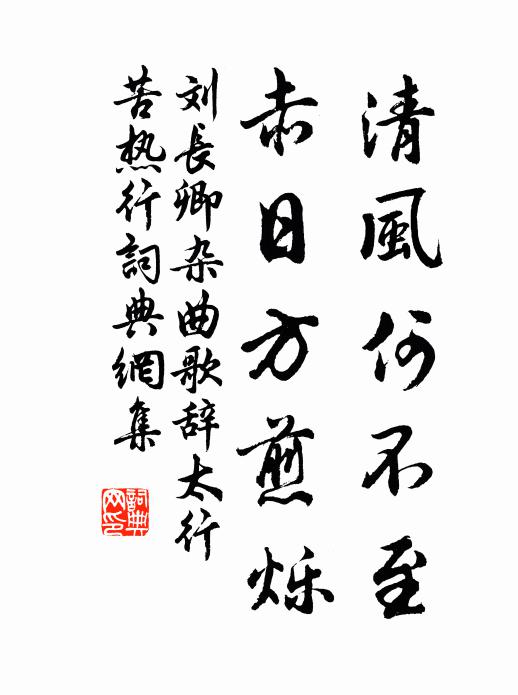 清風何不至
赤日方煎烁
刘長卿杂曲歌辞太行
苦热行詞典網集
詞典网印